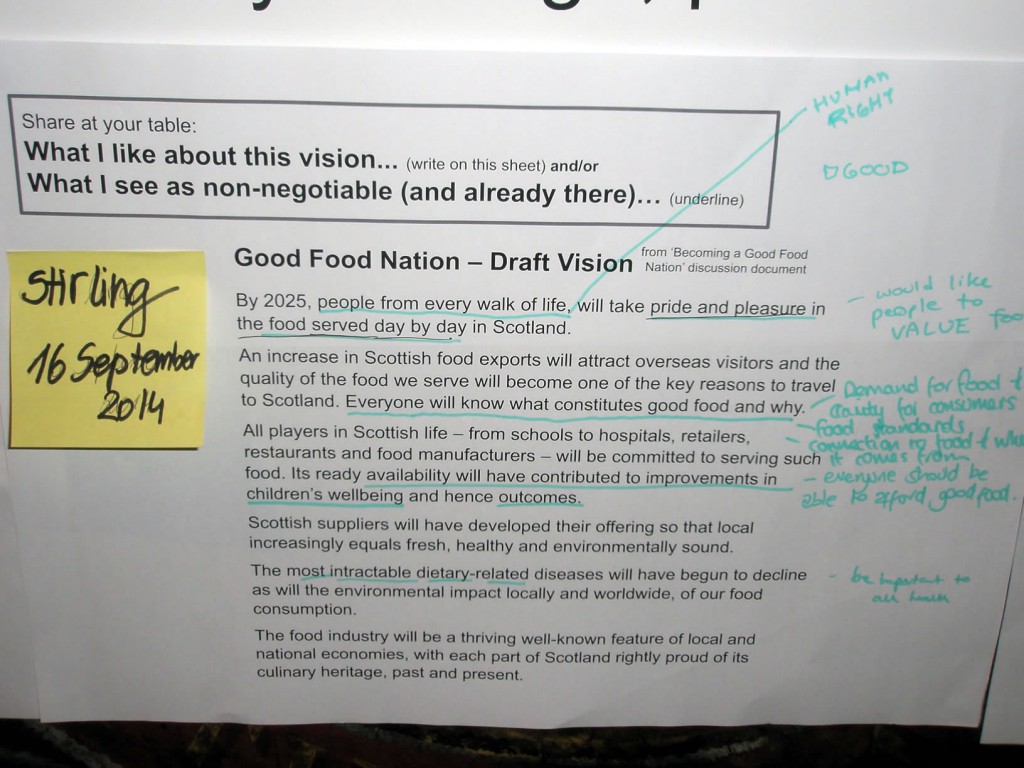 Share at your table:
What I like about this vision... (write on this sheet) and/or
What I see as non-negotiable (and already there)... (underline)
HUMAN
RIGHT
GOOD
Stirling
16 September
2014
Good Food Nation – Draft Vision
from 'Becoming a Good Food
Nation' discussion document
By 2025, people from every walk of life, will take pride and pleasure in
the food served day by day in Scotland.
- would like
people to
VALUE foo
An increase in Scottish food exports will attract overseas visitors and the
quality of the food we serve will become one of the key reasons to travel
to Scotland. Everyone will know what constitutes good food and why.
Demand for food +
clarity for consumers
- food standards
- connection to food + whe
it comes from
- everyone should be
able to afford good food.
All players in Scottish life – from schools to hospitals, retailers,
restaurants and food manufacturers – will be committed to serving such
food. Its ready availability will have contributed to improvements in
children's wellbeing and hence outcomes.
Scottish suppliers will have developed their offering so that local
increasingly equals fresh, healthy and environmentally sound.
The most intractable dietary-related diseases will have begun to decline
as will the environmental impact locally and worldwide, of our food
consumption.
- be important to
health
The food industry will be a thriving well-known feature of local and
national economies, with each part of Scotland rightly proud of its
culinary heritage, past and present.